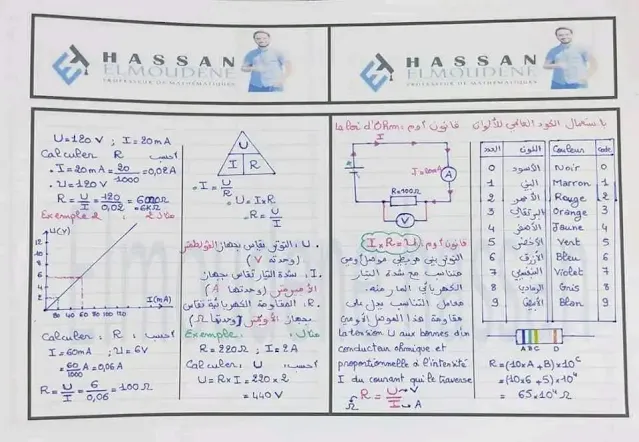 HASSAN
ELMOUDENE
PROFESSEUR DE MATHEMATIQUES
HASSAN
ELMOUDENE
PROFESSEUR DE MATHEMATIQUES
U=120V ; I=20mA
Calculer R احسب
I=20mA=20/1000=0,02A
U=120V
R=U/I=120/0,02=6000Ω
=6KΩ
Exemple 2 مثال 2
U(V)
12
10
8
6
4
2
0
20 40 60 80 100
I(mA)
Calculer R احسب
I=60mA ; U=6V
60/1000 A=0,06A
R=U/I=6/0,06=100Ω
U
I R
I=U/R
U=I×R
R=U/I
U: التوتر يقاس بجهاز الفولطمتر
(وحدته V)
I: شدة التيار تقاس بجهاز
الأمبيرمتر (وحدتها A)
R: المقاومة الكهربائية تقاس
بجهاز الأومتر (وحدتها Ω)
Exemple: مثال:
R=220Ω ; I=2A
Calculer U احسب
U=R×I=220×2
=440V
La loi d'Ohm: قانون أوم
I
A
R=100Ω
V
I×R=U قانون أوم:
التوتر بين مربطي موصل أومي
متناسب مع شدة التيار
الكهربائي المار منه.
معامل التناسب يدل على
مقاومة هذا الموصل الأومي
La tension U aux bornes d'un
conducteur ohmique et
proportionnelle à l'intensité
I du courant qui le traverse
R=U/I
Ω V A
باستعمال الكود العالمي للألوان
العدد اللون Couleur code
0 الأسود Noir 0
1 البني Marron 1
2 الأحمر Rouge 2
3 البرتقالي Orange 3
4 الأصفر Jaune 4
5 الأخضر Vert 5
6 الأزرق Bleu 6
7 البنفسجي Violet 7
8 الرمادي Gris 8
9 الأبيض Blan 9
A B C D
R=(10×A+B)×10^C
=(10×6+5)×10⁴
=65×10⁴Ω